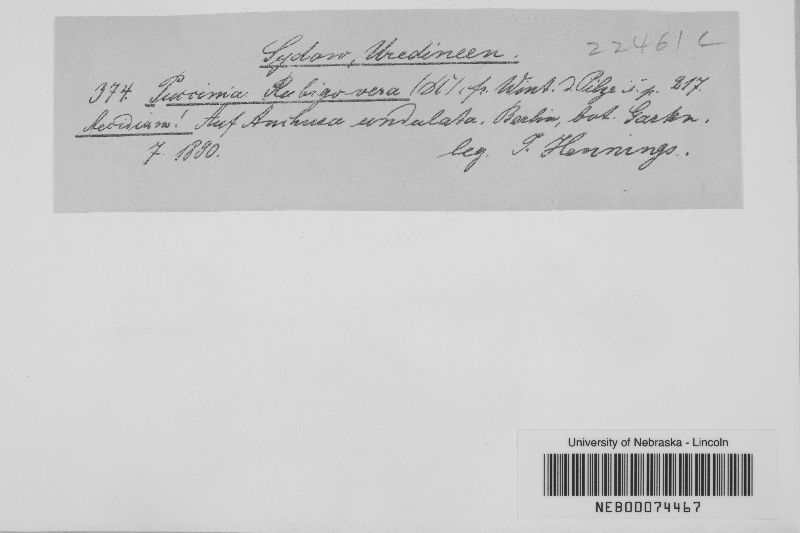 Sydow, Uredineen.
22461 c
374. Puccinia Rubigo vera (DC). cfr. Wint. d. Pilze p. 217.
Aecidium! Auf Anchusa undulata. Berlin, bot. Garten.
7. 1890. leg. P. Hennings.
University of Nebraska - Lincoln
NEB00074467